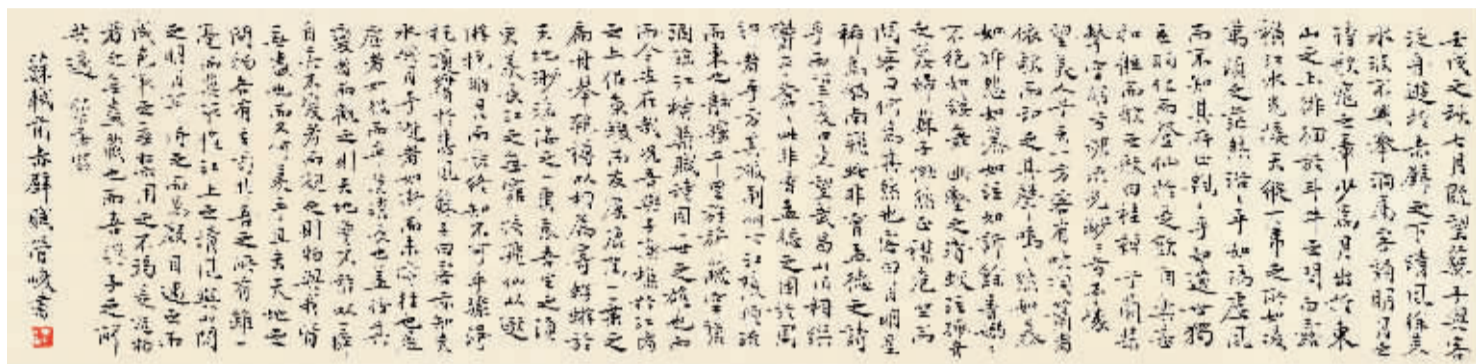 壬戌之秋七月既望蘇子與客
泛舟遊於赤壁之下清風徐來
水波不興舉酒屬客誦明月之
詩歌窈窕之章少焉月出於東
山之上徘徊於斗牛之間白露
橫江水光接天縱一葦之所如凌
萬頃之茫然浩浩乎如馮虛風
而不知其所止飄飄乎如遺世獨
立羽化而登仙於是飲酒樂甚
扣舷而歌之歌曰桂棹兮蘭槳
擊空明兮泝流光渺渺兮予懷
望美人兮天一方客有吹洞簫者
依歌而和之其聲嗚嗚然如怨
如慕如泣如訴餘音嫋嫋
不絕如縷舞幽壑之潛蛟泣孤舟
之嫠婦蘇子愀然正襟危坐而
問客曰何為其然也客曰月明星
稀烏鵲南飛此非曹孟德之詩
乎西望夏口東望武昌山川相繆
鬱乎蒼蒼此非孟德之困於周
郎者乎方其破荊州下江陵順流
而東也舳艫千里旌旗蔽空釃
酒臨江橫槊賦詩固一世之雄也
而今安在哉況吾與子漁樵於江渚
之上侶魚蝦而友麋鹿駕一葉之
扁舟舉匏樽以相屬寄蜉蝣於
天地渺滄海之一粟哀吾生之須
臾羨長江之無窮挾飛仙以遨
遊抱明月而長終知不可乎驟得
托遺響於悲風蘇子曰客亦知夫
水與月乎逝者如斯而未嘗往也盈
虛者如彼而卒莫消長也蓋將自其
變者而觀之則天地曾不能以一瞬
自其不變者而觀之則物與我皆
無盡也而又何羨乎且夫天地之
間物各有主苟非吾之所有雖一
毫而莫取惟江上之清風與山間
之明月耳得之而為聲目遇之而
成色取之無禁用之不竭是造物
者之無盡藏也而吾與子之所
共適
蘇軾前赤壁賦 書